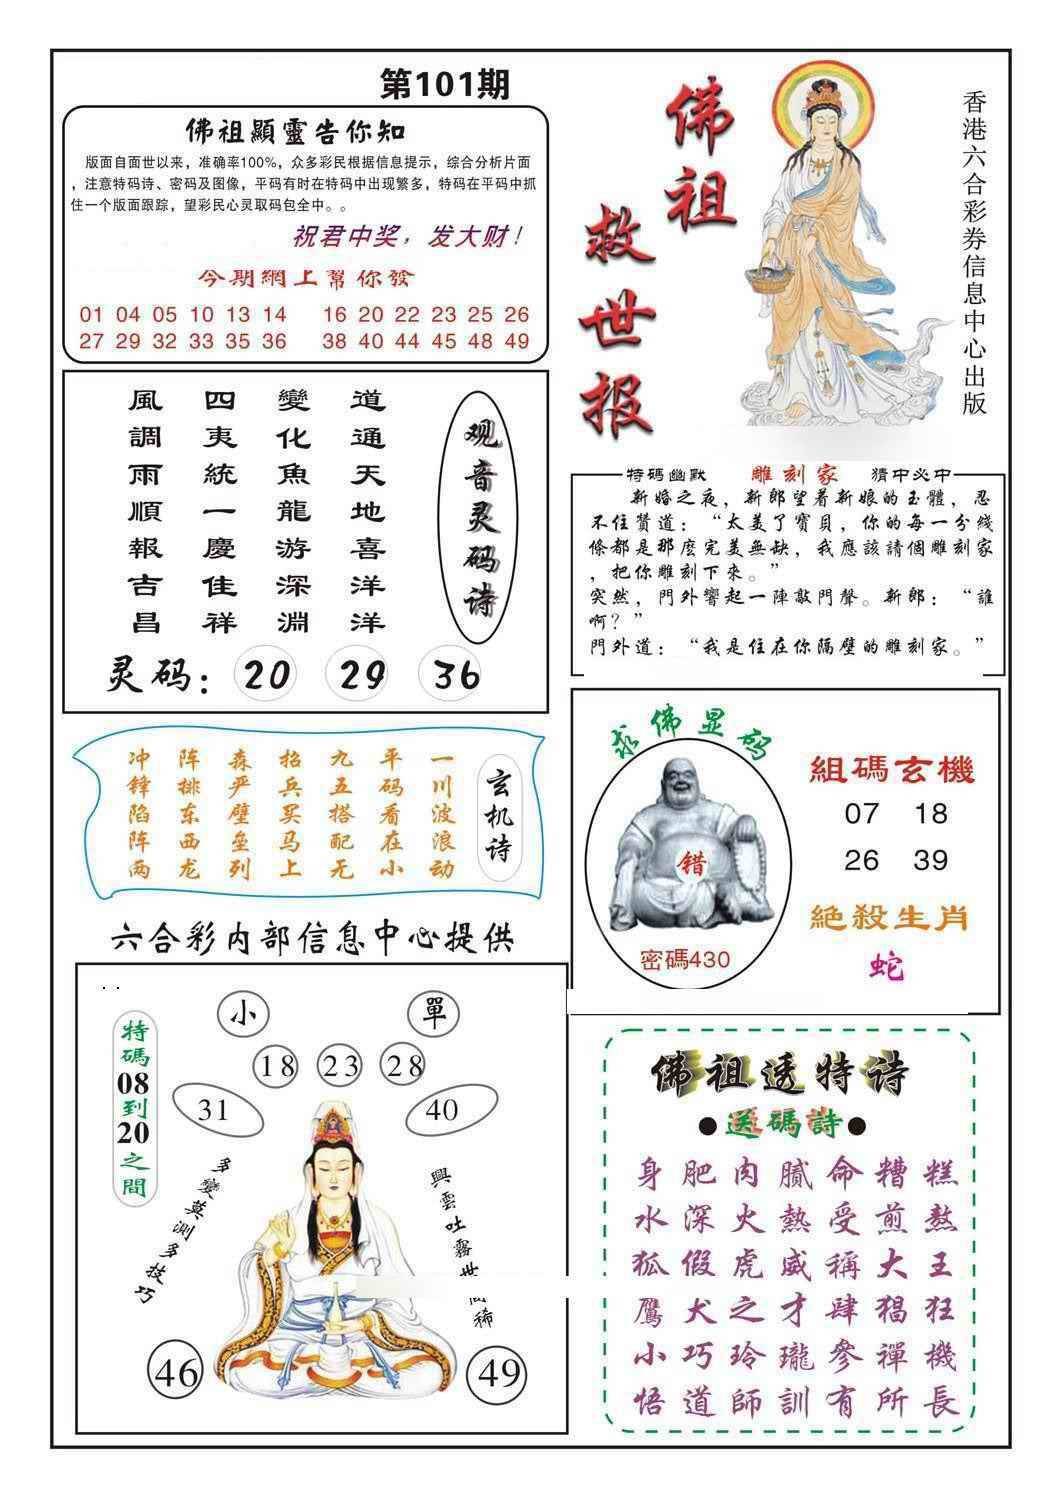 第101期
佛祖顯靈告你知
版面自面世以来，准确率100%，众多彩民根据信息提示，综合分析片面
，注意特码诗、密码及图像，平码有时在特码中出现繁多，特码在平码中抓
住一个版面跟踪，望彩民心灵取码包全中。。
祝君中奖，发大财！
今期網上幫你發
01 04 05 10 13 14 16 20 22 23 25 26
27 29 32 33 35 36 38 40 44 45 48 49
佛祖
救世报
香港六合彩券信息中心出版
观音灵码诗
道通天地喜洋洋
變化魚龍游深淵
四夷統一慶佳祥
風調雨順報吉昌
灵码：20 29 36
特碼幽默 雕刻家 猜中必中
新婚之夜，新郎望着新娘的玉體，忍
不住贊道：“太美了寶貝，你的每一分綫
條都是那麽完美無缺，我應該請個雕刻家
，把你雕刻下來。”
突然，門外響起一陣敲門聲。新郎：“誰
啊？”
門外道：“我是住在你隔壁的雕刻家。”
玄机诗
一川波浪动
平码看在小
九五搭配无
招兵买马上
森严壁垒列
阵排东西龙
冲锋陷阵两
求佛显码
错
密碼430
組碼玄機
07 18
26 39
絕殺生肖
蛇
六合彩内部信息中心提供
特碼08到20之間
小 單
18 23 28
31 40
多變莫測多技巧
興雲吐霧世
稀
46 49
佛祖透特诗
●送碼詩●
身肥肉膩命糟糕
水深火熱受煎熬
狐假虎威稱大王
鷹犬之才肆猖狂
小巧玲瓏參禪機
悟道師訓有所長